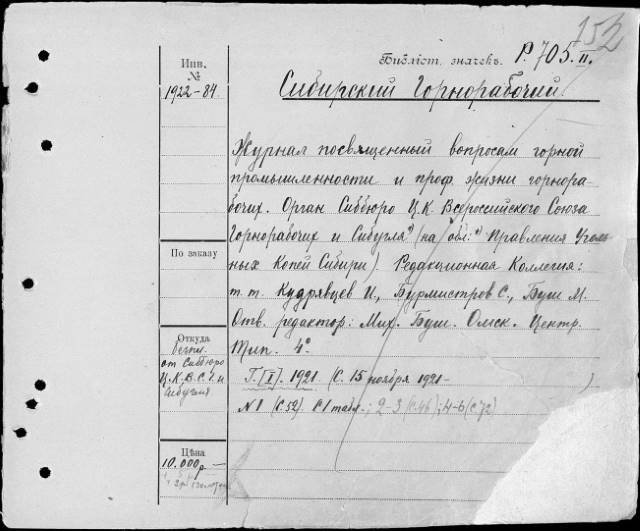 152
Библіот. значекъ. Р. 705. II.
Инв.
№
1922-84
Сибирский Горнорабочий.
Журнал посвященный вопросам горной
промышленности и проф. жизни горнора-
бочих. Орган Сиббюро Ц.К. Всероссийского Союза
Горнорабочих и Сибугля (на обл: Правления Уголь-
ных Копей Сибири). Редакционная Коллегия:
т.т. Кудрявцев И., Бурмистров С., Буш М.
Отв. редактор: Мих. Буш. Омск. Центр.
Тип. 4°
Г. [I]. 1921 (с. 15 ноября 1921- )
N 1 (с. 52) с 1 табл.; 2-3 (с. 46); 4-6 (с. 72)
По заказу
Откуда
безпл.
от Сиббюро
Ц.К.В.С.Г. и
Сибугля
Цѣна
10.000 р-